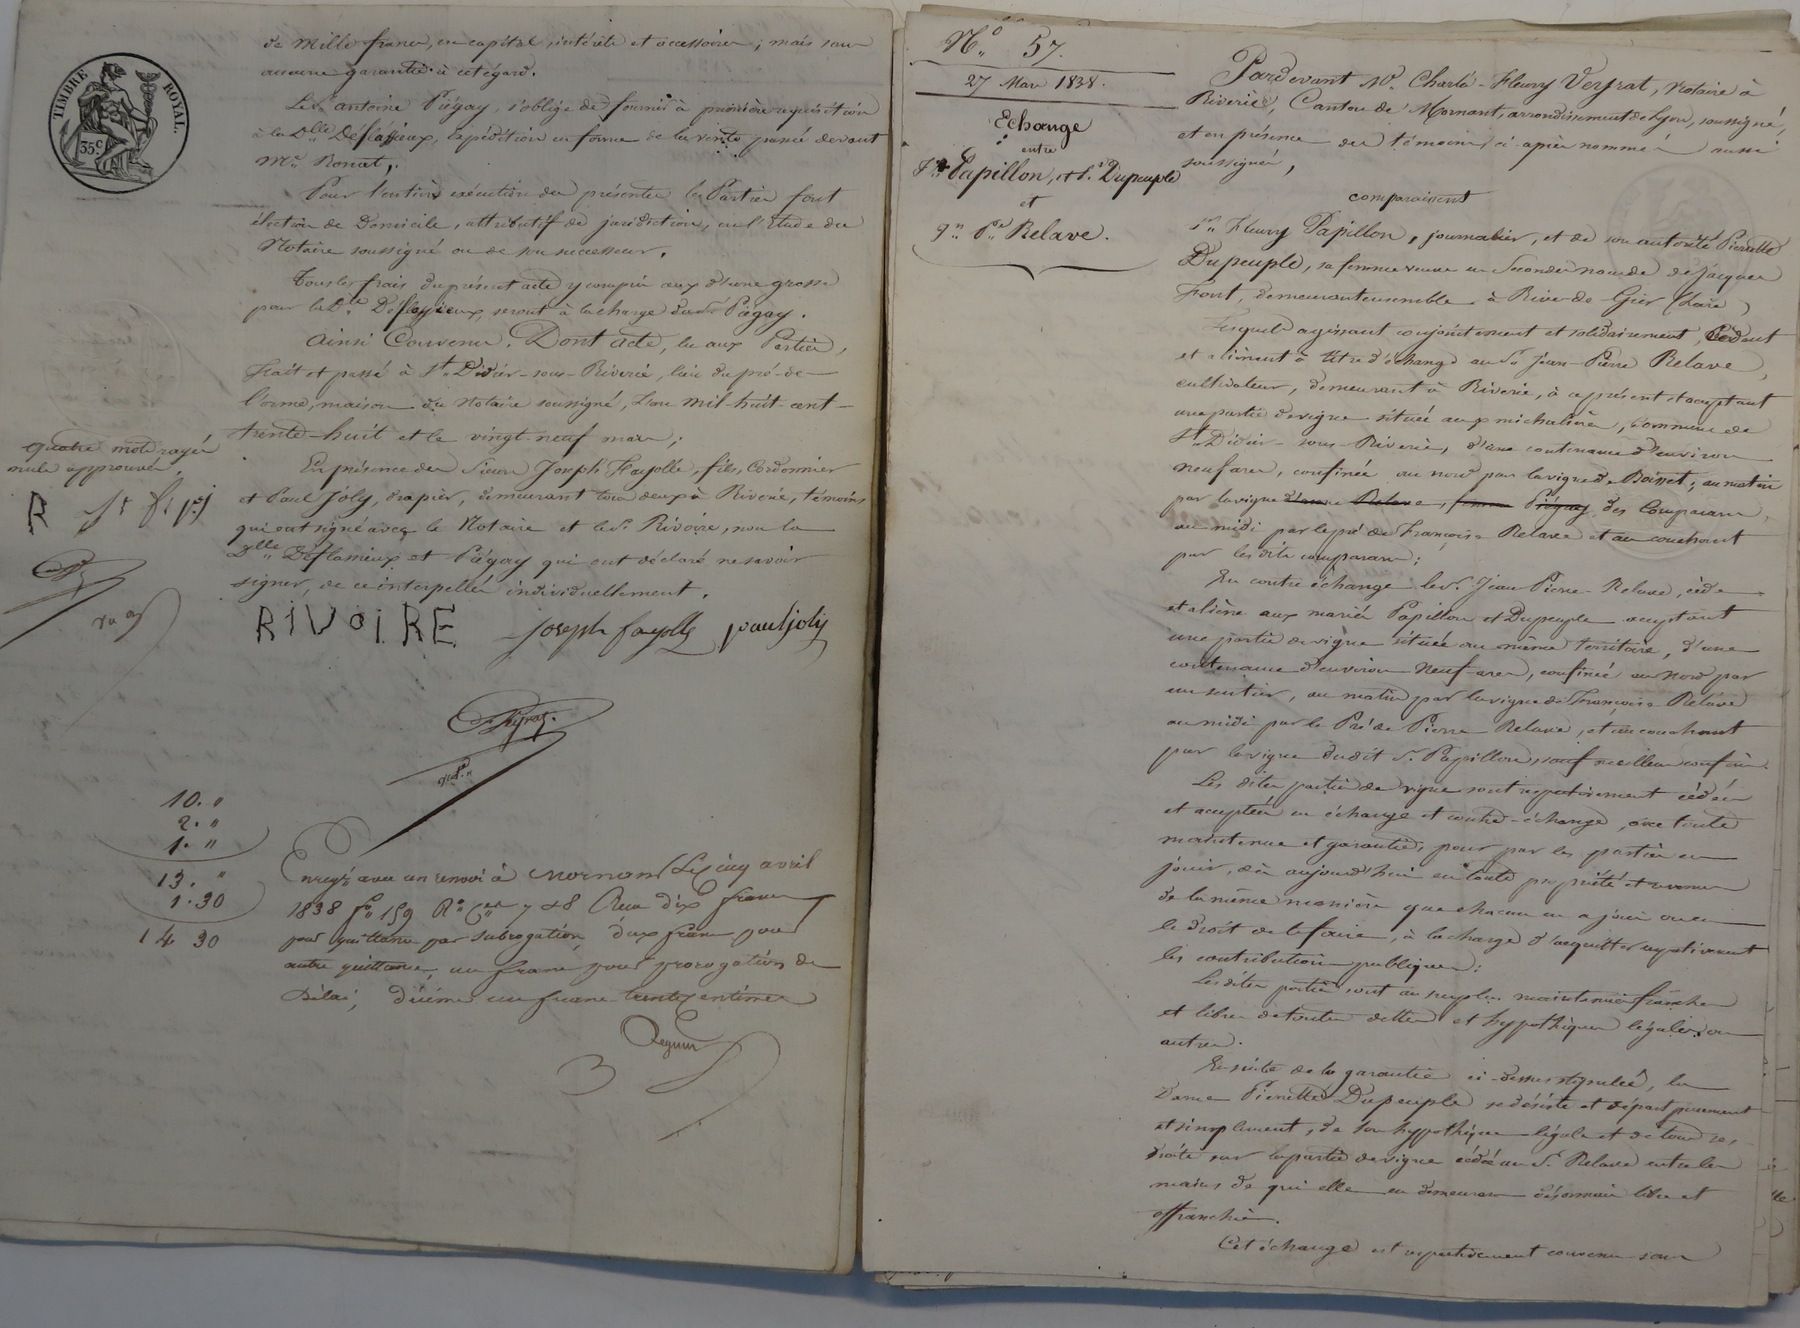 TIMBRE ROYAL.
35c
de mille francs, en capital, intérêts et accessoires ; mais sans
aucune garantie à cet égard.
Le Sr antoine Piégay, s'oblige de fournir à première réquisition
à la Dlle Déflassieux, expédition en forme de la vente passée devant
Me Bonnat,.
Pour l'entière exécution des présentes les Parties font
élection de Domicile, attributif de juridiction, en l'Etude du
Notaire soussigné ou de son successeur.
Tous les frais du présent acte y compris ceux d'une grosse
pour la Dlle Déflassieux, seront à la charge dudit Piégay.
Ainsi Convenu. Dont acte, lu aux Parties,
Fait et passé à St Didier-sous-Riverie, lieu du pré-de-
l'orme, maison du Notaire soussigné, L'an mil-huit-cent-
trente-huit et le vingt-neuf mars ;
En présence des Sieurs Joseph Fayolle, fils, Cordonnier
et Paul Joly, drapier, demeurant tous deux à Riverie, témoins
qui ont signé avec le Notaire et le Sr Rivoire, non la
Dlle Déflassieux et Piégay qui ont déclaré ne savoir
signer, de ce interpellés individuellement.
quatre mots rayés
nuls approuvés.
R Jt f pj
RIVOIRE joseph fayolle pauljoly
10. "
2. "
1. "
13. "
1. 30
14 30
Enregé avec un renvoi à Mornant Le cinq avril
1838 fo 159 Ro Ces 7 et 8 Reçu dix francs
pour quittance par subrogation, deux francs pour
autre quittance, un franc pour prorogation de
délai, décime un franc trente centimes
No 57.
27 Mars 1838.
Echange
entre
Papillon, et f. Dupeuple
et
Jn Pre Relave.
Pardevant Me Charles-Fleury Veyrat, Notaire à
Riverie, Canton de Mornant, arrondissement de Lyon, soussigné,
et en présence des témoins ci-après nommés aussi
soussignés,
comparaissent
Sr Fleury Papillon, journalier, et de son autorité Pierrette
Dupeuple, sa femme veuve en Secondes noces de Jacques
Font, demeurant ensemble à Rive-de-Gier (Loire)
Lesquels agissant conjointement et solidairement, Cèdent
et aliènent à titre d'échange au Sr Jean-Pierre Relave,
cultivateur, demeurant à Riverie, à ce présent et acceptant
une partie de vigne située aux michalières, commune de
St Didier-sous-Riverie, d'une contenance d'environ
neuf ares, confinée au nord par la vigne de Boisset ; au matin
par la vigne d'anne Relave, femme Piégay, des Comparans,
au midi par le pré de François Relave et au couchant
par lesdits comparans ;
En contre échange le Sr Jean Pierre Relave, cède
et aliène aux mariés Papillon et Dupeuple acceptant
une partie de vigne située au même territoire, d'une
contenance d'environ Neuf ares, confinée au nord par
un sentier, au matin par la vigne de François Relave
au midi par le Pré de Pierre Relave, et au couchant
par la vigne dudit Sr Papillon, sauf meilleurs confins.
Les dites parties de vigne sont respectivement cédées
et acceptées en échange et contre-échange, avec toute
maintenue et garantie, pour par les parties en
jouir, dès aujourd'hui en toute propriété et revenus
de la même manière que chacun en a joui ou eu
le droit de le faire, à la charge d'acquitter respectivement
les contributions publiques ;
Lesdites parties sont au surplus maintenues franches
et libres de toutes dettes et hypothèques légales ou
autres.
Ensuite de la garantie ci-dessus stipulée, la
Dame Pierrette Dupeuple se désiste et départ purement
et simplement, de son hypothèque légale et de tous ses
droits sur la partie de vigne cédée au Sr Relave entre les
mains de qui elle en demeurera désormais libre et
affranchie.
Cet échange est respectivement convenu sans